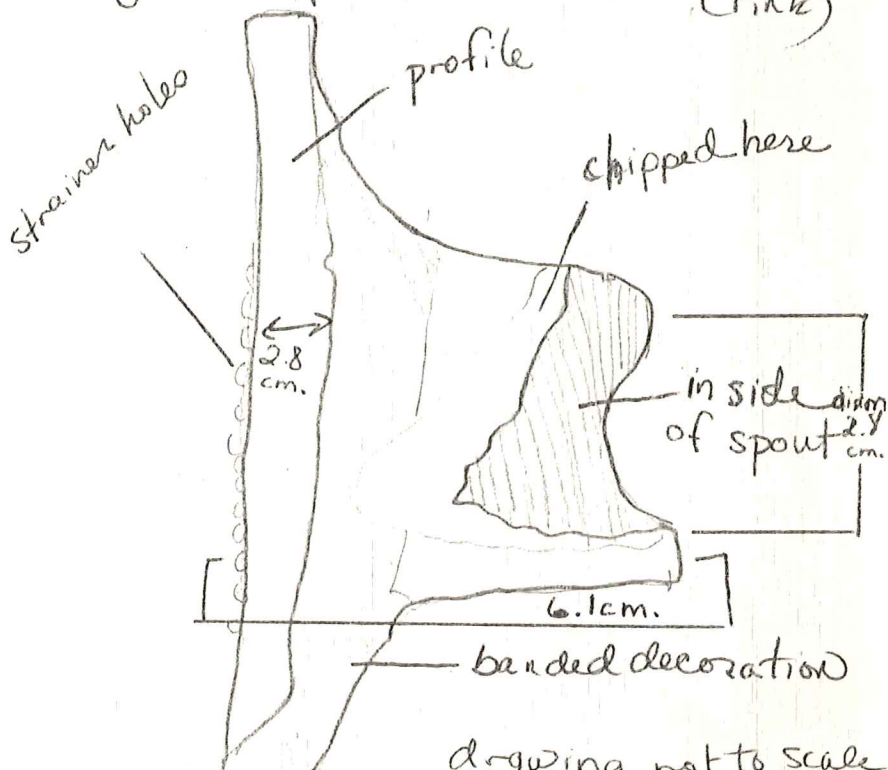 (Pink)
profile
strainer holes
chipped here
2.8
cm.
in side
of spout
diam
2.8
cm.
6.1cm.
banded decoration
drawing not to scale